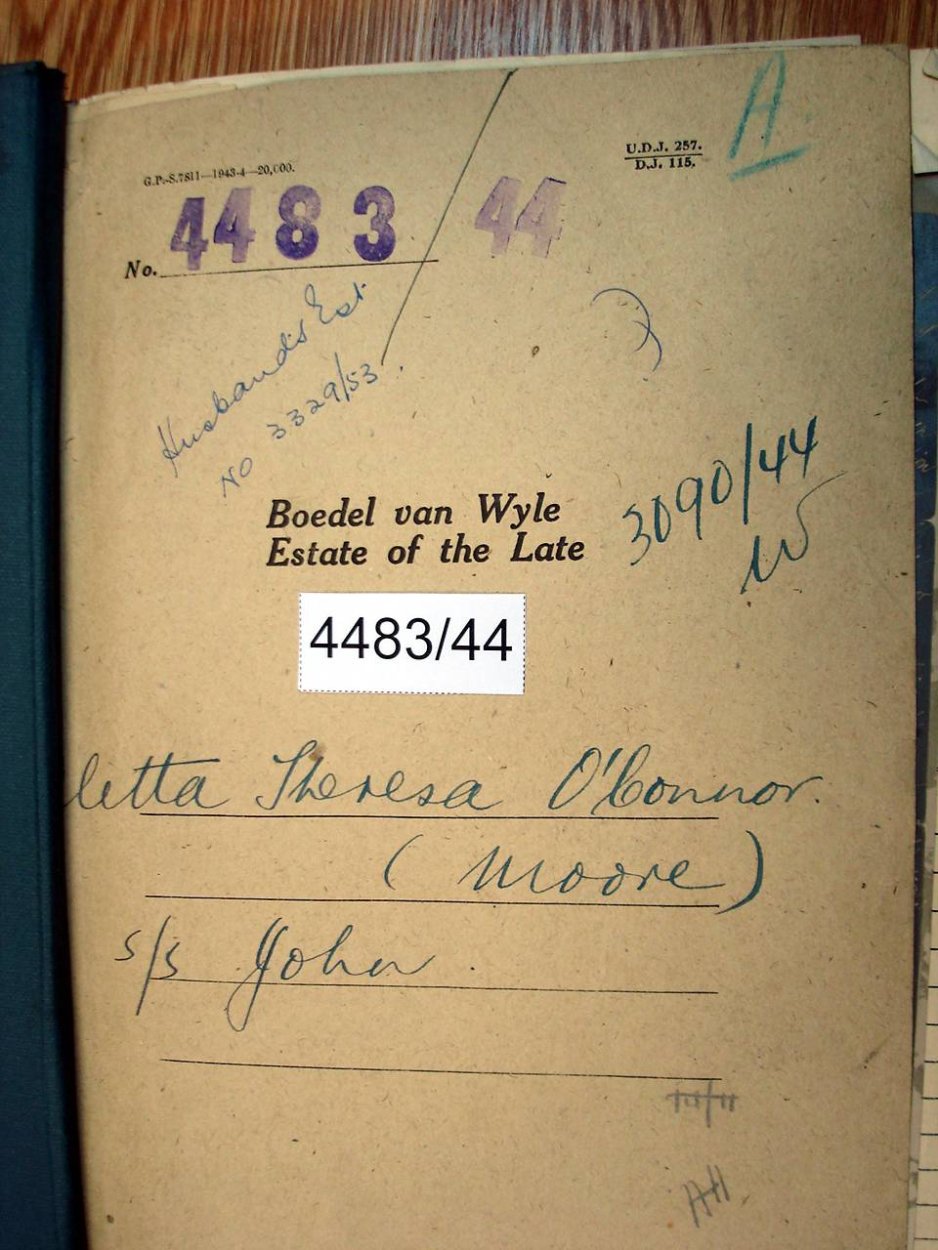 A
U.D.J. 257.
D.J. 115.
G.P.-S.7811—1943-4—20,000.
No. 4483/44
Husband's Est.
No 3329/53.
3090/44
Boedel van Wyle
Estate of the Late
4483/44
letta Theresa O'Connor.
(Moore)
s/s John.
AH